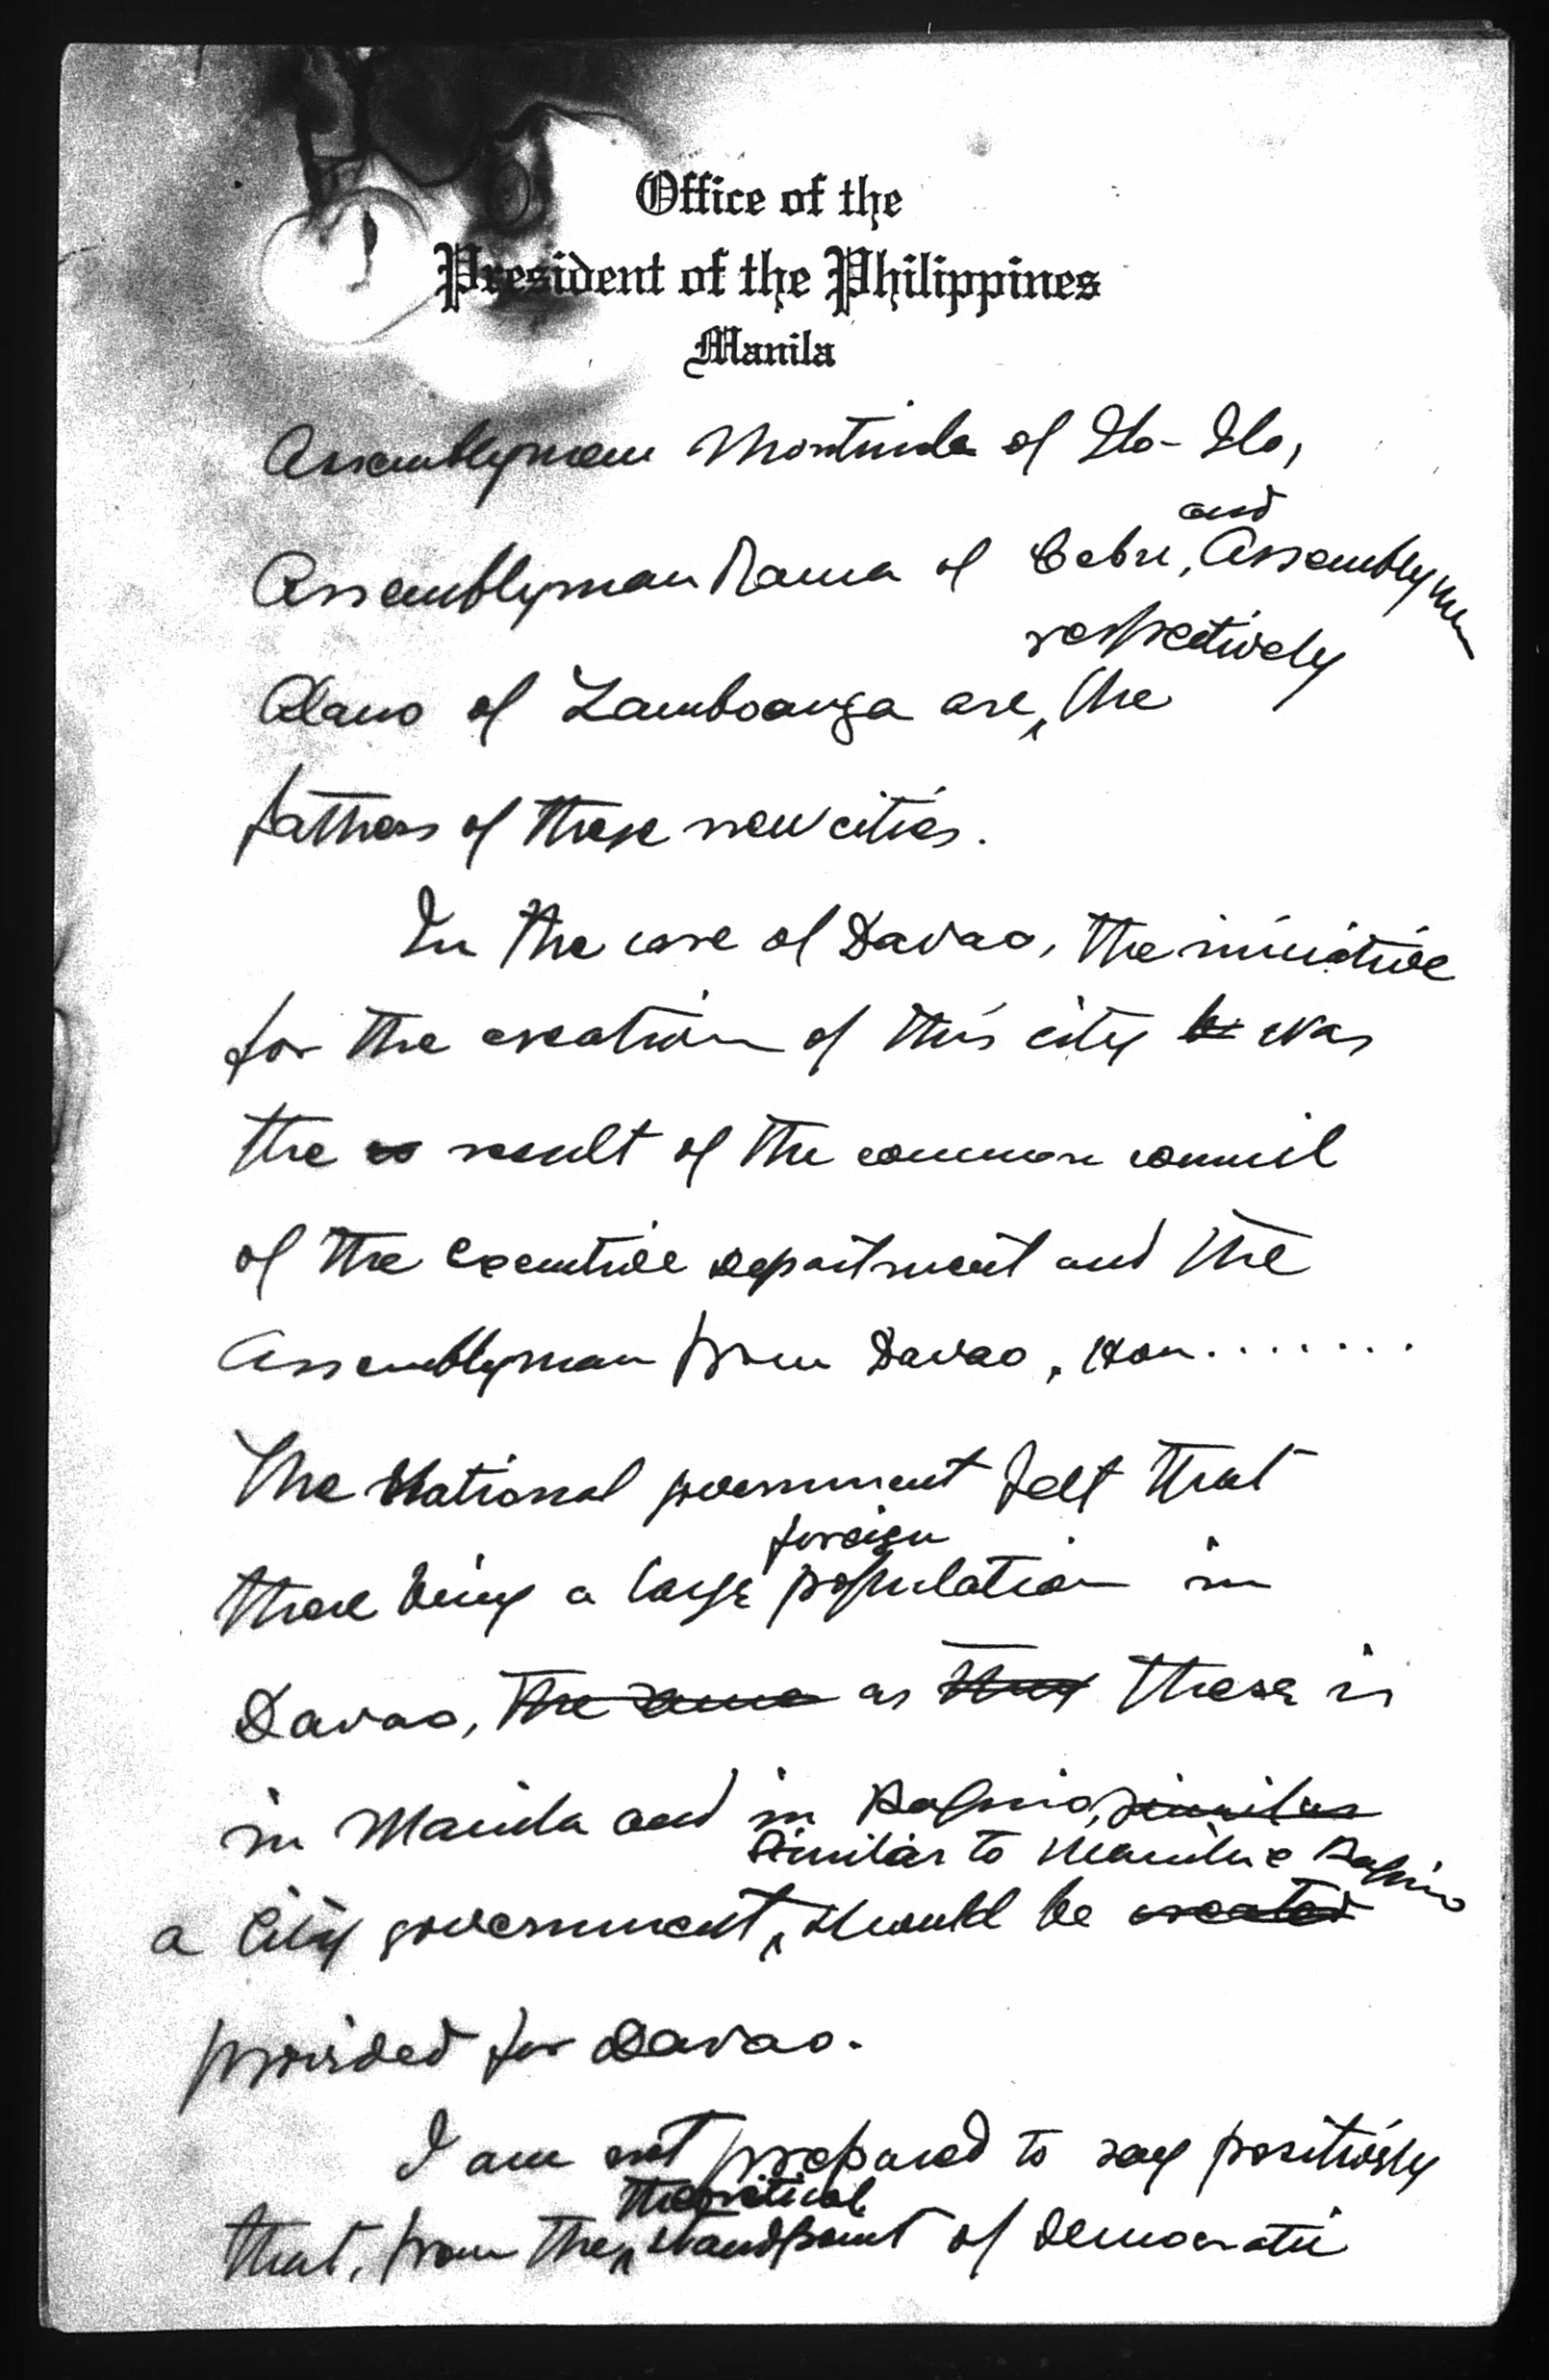 Office of the
President of the Philippines
Manila
Assemblyman Montinola of Ilo-Ilo,
and
Assemblyman Rama of Cebu, Assemblyman
respectively
Alano of Zamboanga are the
fathers of these new cities.
In the case of Davao, the iniciative
for the creation of this city was
the result of the common council
of the executive department and the
Assemblyman from Davao, Hon........
The National government felt that
foreign
there being a large population in
Davao, the same as they there is
in Manila and in Baguio, similar
Similar to Manila & Baguio
a City government, should be created
provided for Davao.
I am not prepared to say positively
theoretical
that, from the standpoint of democratic